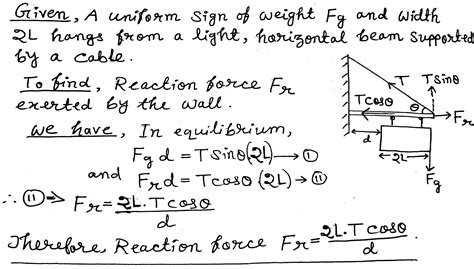 Given, A uniform sign of weight Fg and width
2L hangs from a light, horizontal beam supported
by a cable.
To find, Reaction force Fr
exerted by the wall.
We have, In equilibrium,
Fg d = Tsinθ(2L) → Ⓘ
and Frd = Tcosθ (2L) → ⑪
∴ ⑪ ⇒ Fr = 2L.Tcosθ/d
Therefore, Reaction force Fr = 2L.Tcosθ/d .
T
Tsinθ
Tcosθ
θ
Fr
d
2L
Fg